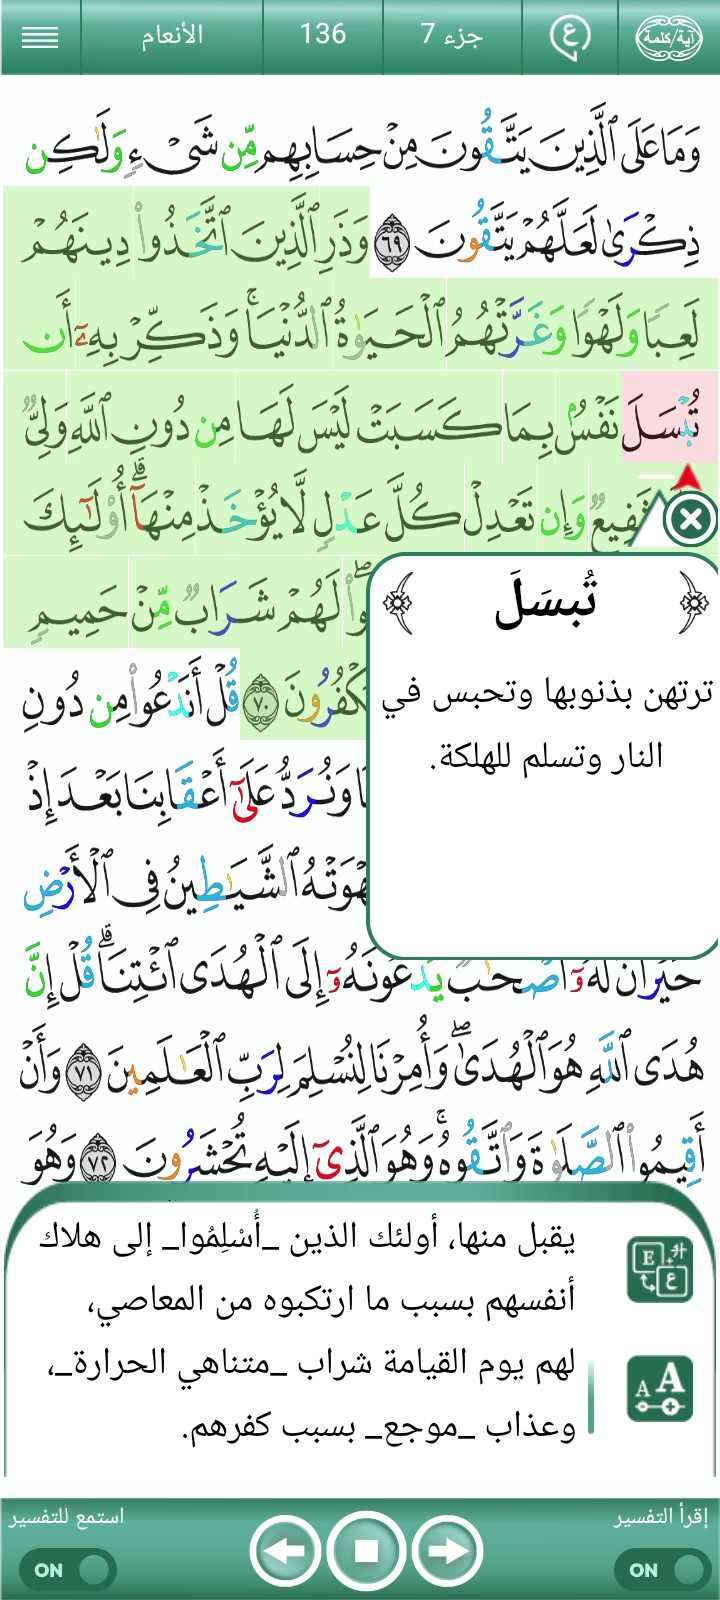 آية/كلمة
ع
جزء 7
136
الأنعام
وَمَا عَلَى الَّذِينَ يَتَّقُونَ مِنْ حِسَابِهِم مِّن شَىْءٍ وَلَٰكِن
ذِكْرَىٰ لَعَلَّهُمْ يَتَّقُونَ ٦٩ وَذَرِ الَّذِينَ اتَّخَذُوا دِينَهُمْ
لَعِبًا وَلَهْوًا وَغَرَّتْهُمُ الْحَيَوٰةُ الدُّنْيَا ۚ وَذَكِّرْ بِهِۦٓ أَن
تُبْسَلَ نَفْسٌۢ بِمَا كَسَبَتْ لَيْسَ لَهَا مِن دُونِ اللَّهِ وَلِىٌّ
شَفِيعٌ وَإِن تَعْدِلْ كُلَّ عَدْلٍ لَّا يُؤْخَذْ مِنْهَآ ۗ أُو۟لَٰٓئِكَ
لَهُمْ شَرَابٌ مِّنْ حَمِيمٍ
يَكْفُرُونَ ٧٠ قُلْ أَنَدْعُوا مِن دُونِ
وَنُرَدُّ عَلَىٰٓ أَعْقَابِنَا بَعْدَ إِذْ
الشَّيَٰطِينُ فِى الْأَرْضِ
حَيْرَانَ لَهُۥٓ أَصْحَٰبٌ يَدْعُونَهُۥٓ إِلَى الْهُدَى ائْتِنَا ۗ قُلْ إِنَّ
هُدَى اللَّهِ هُوَ الْهُدَىٰ ۖ وَأُمِرْنَا لِنُسْلِمَ لِرَبِّ الْعَٰلَمِينَ ٧١ وَأَنْ
أَقِيمُوا الصَّلَوٰةَ وَاتَّقُوهُ ۚ وَهُوَ الَّذِىٓ إِلَيْهِ تُحْشَرُونَ ٧٢ وَهُوَ
تُبسَلَ
ترتهن بذنوبها وتحبس في
النار وتسلم للهلكة.
يقبل منها، أولئك الذين _أُسْلِمُوا_ إلى هلاك
أنفسهم بسبب ما ارتكبوه من المعاصي،
لهم يوم القيامة شراب _متناهي الحرارة_،
وعذاب _موجع_ بسبب كفرهم.
E ع
A A
إقرأ التفسير
ON
استمع للتفسير
ON